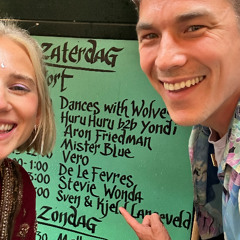 Zaterdag
orf
Dances with Wolve
Huru Huru b2b Yondi
Aron Friedman
Mister Blue
Vero
1:00 De Le Fevres
:30 Stevie Wonda
:00 Sven & Kjel
Zondag